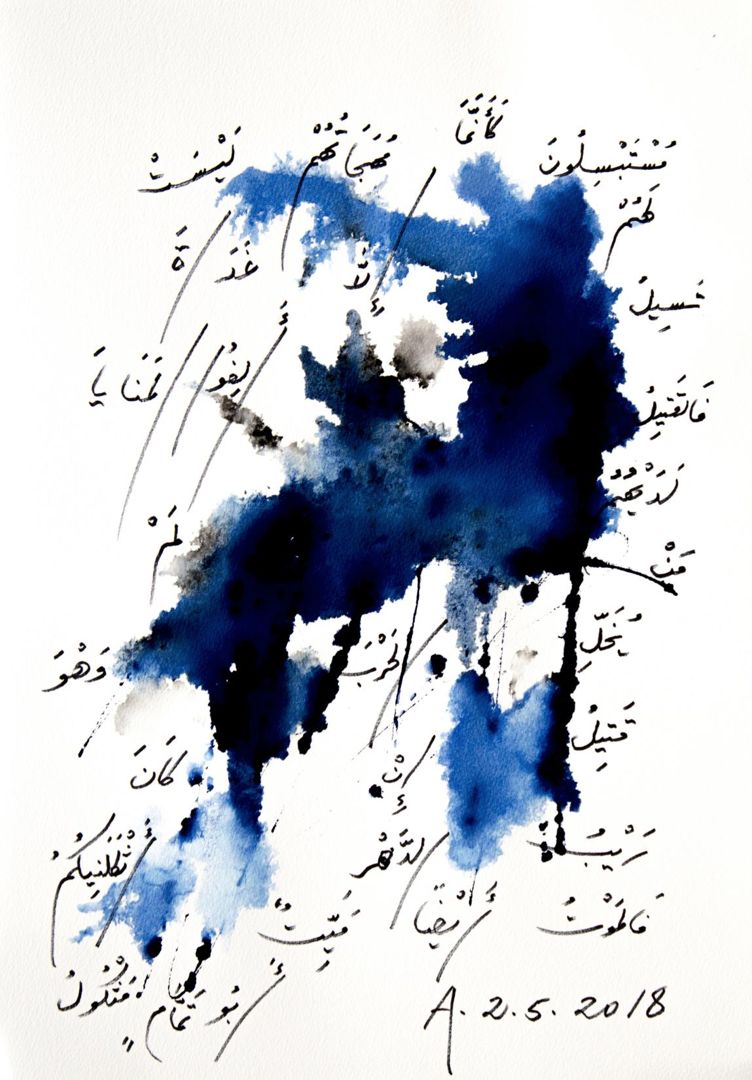 مُسْتَبْسِلُونَ كَأَنَّمَا مُهَجَاتُهُمْ لَيْسَتْ
لَهُمْ إِلَّا غَدَاةَ
تَسِيلُ
أَلِفُوا المَنَايَا
فَالقَتِيلُ
لَدَيْهُمُ
مَنْ لَمْ
يُخَلِّ الحَرْبَ وَهْوَ
قَتِيلُ
إِنْ كَانَ
رَيْبُ الدَّهْرِ أَثْكَلَنِيكُمُ
فَالمَوْتُ أَيْضًا مَيِّتٌ مَثْكُولُ
أَبُو تَمَّامٍ
A. 2.5. 2018